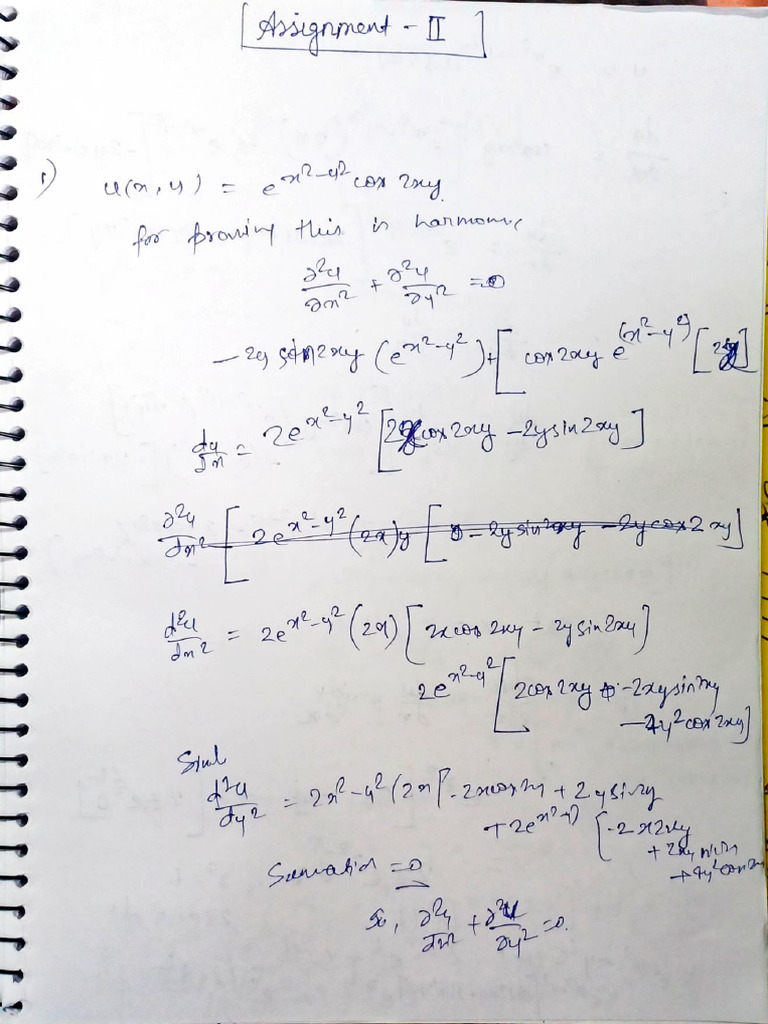 Assignment - II
1) u(x, y) = e^{x²-y²} cos 2xy.
for proving this is harmonic
∂²u/∂x² + ∂²u/∂y² = 0
- 2y sin 2xy (e^{x²-y²}) + [cos 2xy e^{(x²-y²)} [2x]
du/dx = 2e^{x²-y²} [2x cos 2xy - 2y sin 2xy]
∂²u/dx² [2e^{x²-y²} (2x) y [0 - 2y sin 2xy - 2y cos 2xy]
d²u/dx² = 2e^{x²-y²} (2x) [2x cos 2xy - 2y sin 2xy]
2e^{x²-y²} [2 cos 2xy + -2xy sin 2xy
- 4y² cos 2xy]
d²u/dy² = 2x²-y² (2x [-2x cos 2x + 2y sin 2y
+ 2e^{(x²-y²)} [-2x2xy
+ 2xy
+ 4y² cos 2x
= 0
So, ∂²u/dx² + ∂²u/∂y² = 0.